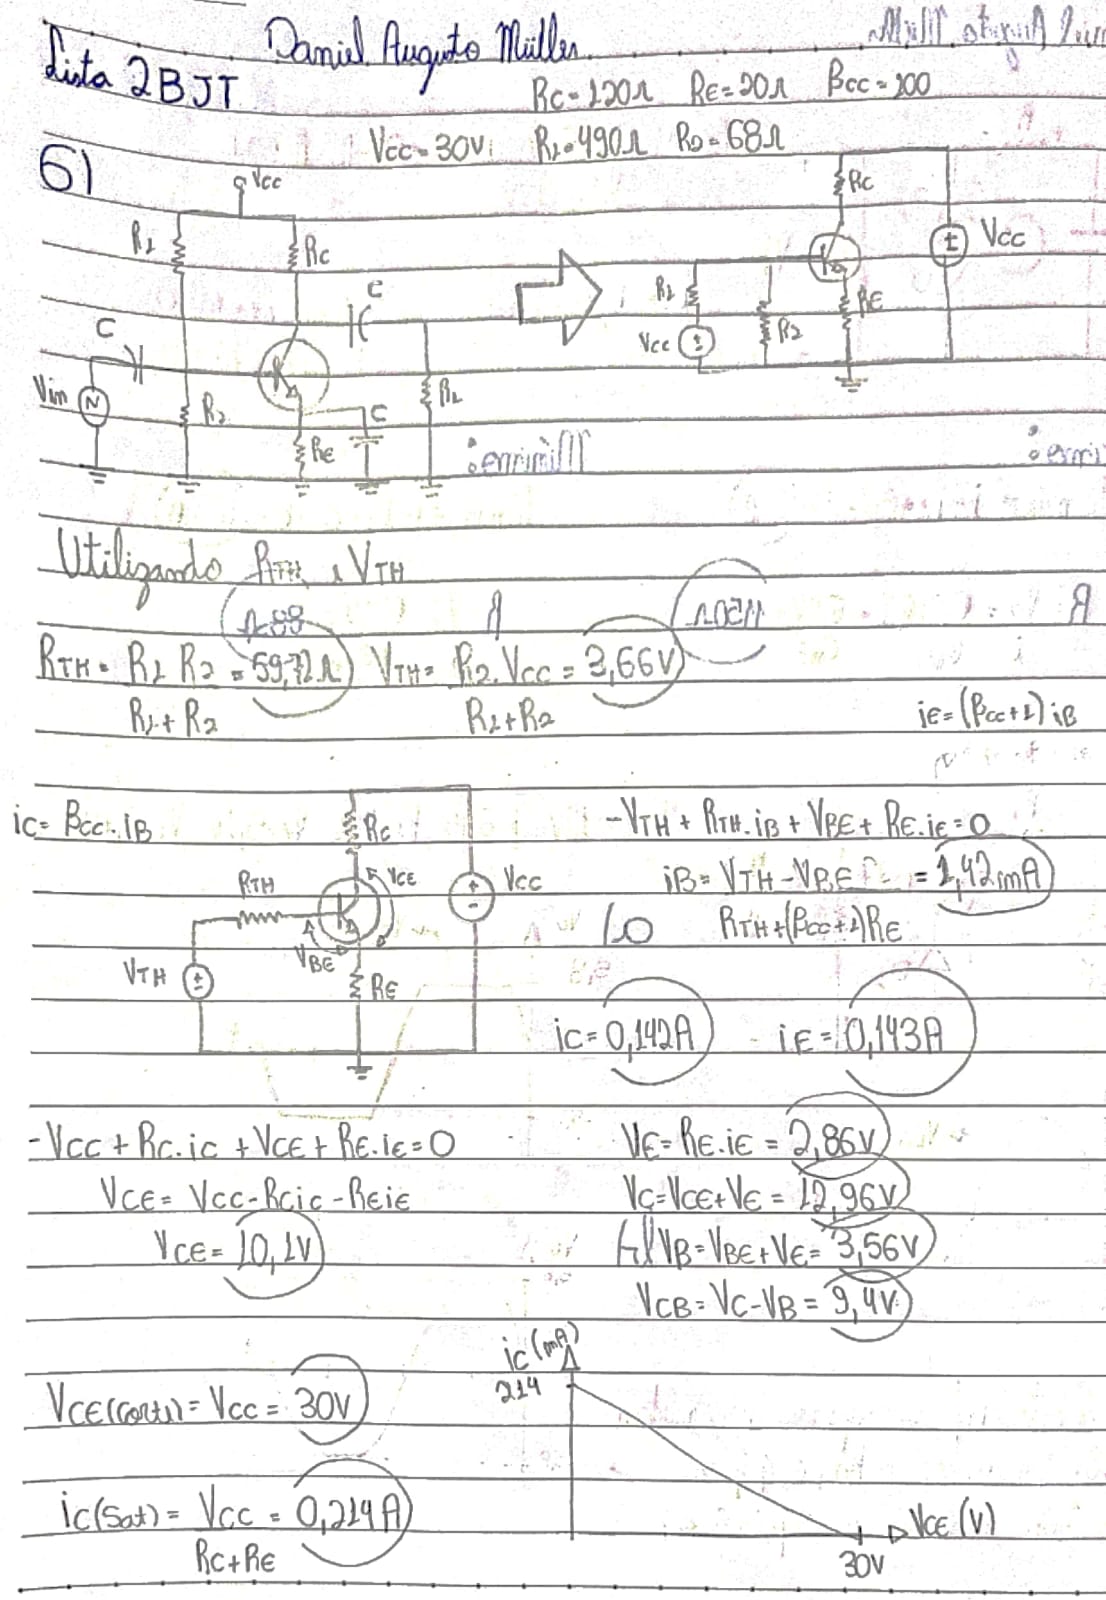 Daniel Augusto Müller
Lista 2 BJT
Rc = 120Ω RE = 20Ω βcc = 100
Vcc = 30V R1 = 490Ω R2 = 68Ω
6)
Vcc
R1
Rc
C
C
Vin
R2
RE
C
RL
Rc
Vcc
R1
RE
R2
Vcc
Utilizando RTH e VTH
RTH = R1 R2 = 59,72Ω VTH = R2.Vcc = 3,66V
R1 + R2 R1 + R2
iE = (βcc+1) iB
ic = βcc.iB
Rc
VCE
Vcc
RTH
VBE
VTH
RE
-VTH + RTH.iB + VBE + RE.iE = 0
iB = VTH - VBE = 1,42mA
RTH + (βcc+1)RE
ic = 0,142A iE = 0,143A
-Vcc + Rc.ic + VCE + RE.iE = 0
VCE = Vcc - Rcic - REiE
VCE = 10,1V
VE = RE.iE = 2,86V
VC = VCE + VE = 12,96V
VB = VBE + VE = 3,56V
VCB = VC - VB = 9,4V
VCE(corte) = Vcc = 30V
ic(Sat) = Vcc = 0,214A
Rc + RE
ic (mA)
214
VCE (V)
30V